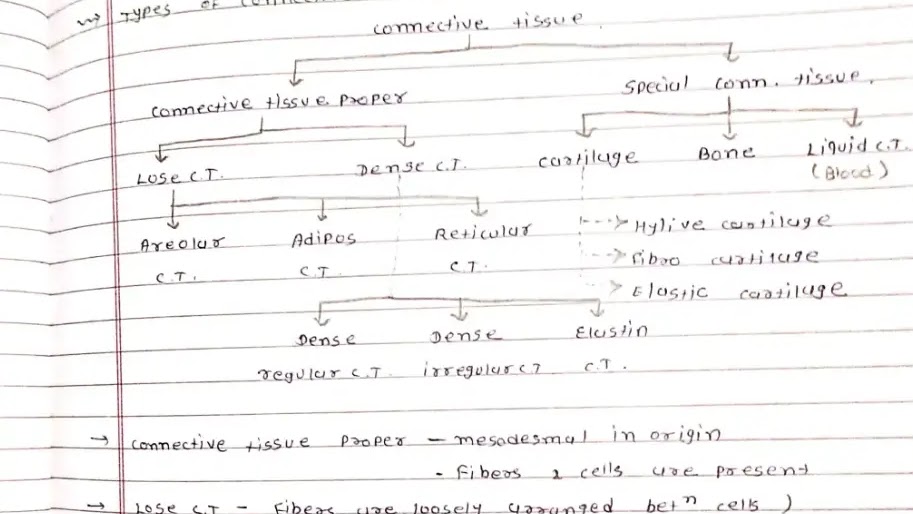 ⇝ Types of connec
connective tissue.
connective tissue proper
special conn. tissue.
Lose C.T.
Dense C.T.
cartiluge
Bone
Liquid C.T.
(Blood)
Areolar
C.T.
Adipos
C.T
Reticular
C.T.
---> Hylive cartiluge
---> Fibro cartiluge
---> Elastic cartiluge
Dense
regular C.T.
Dense
irregular C T
Elastin
C.T.
→ connective tissue proper - mesodesmal in origin
- Fibers & cells are present
→ Lose C.T - Fibers are loosely arranged betⁿ cells )